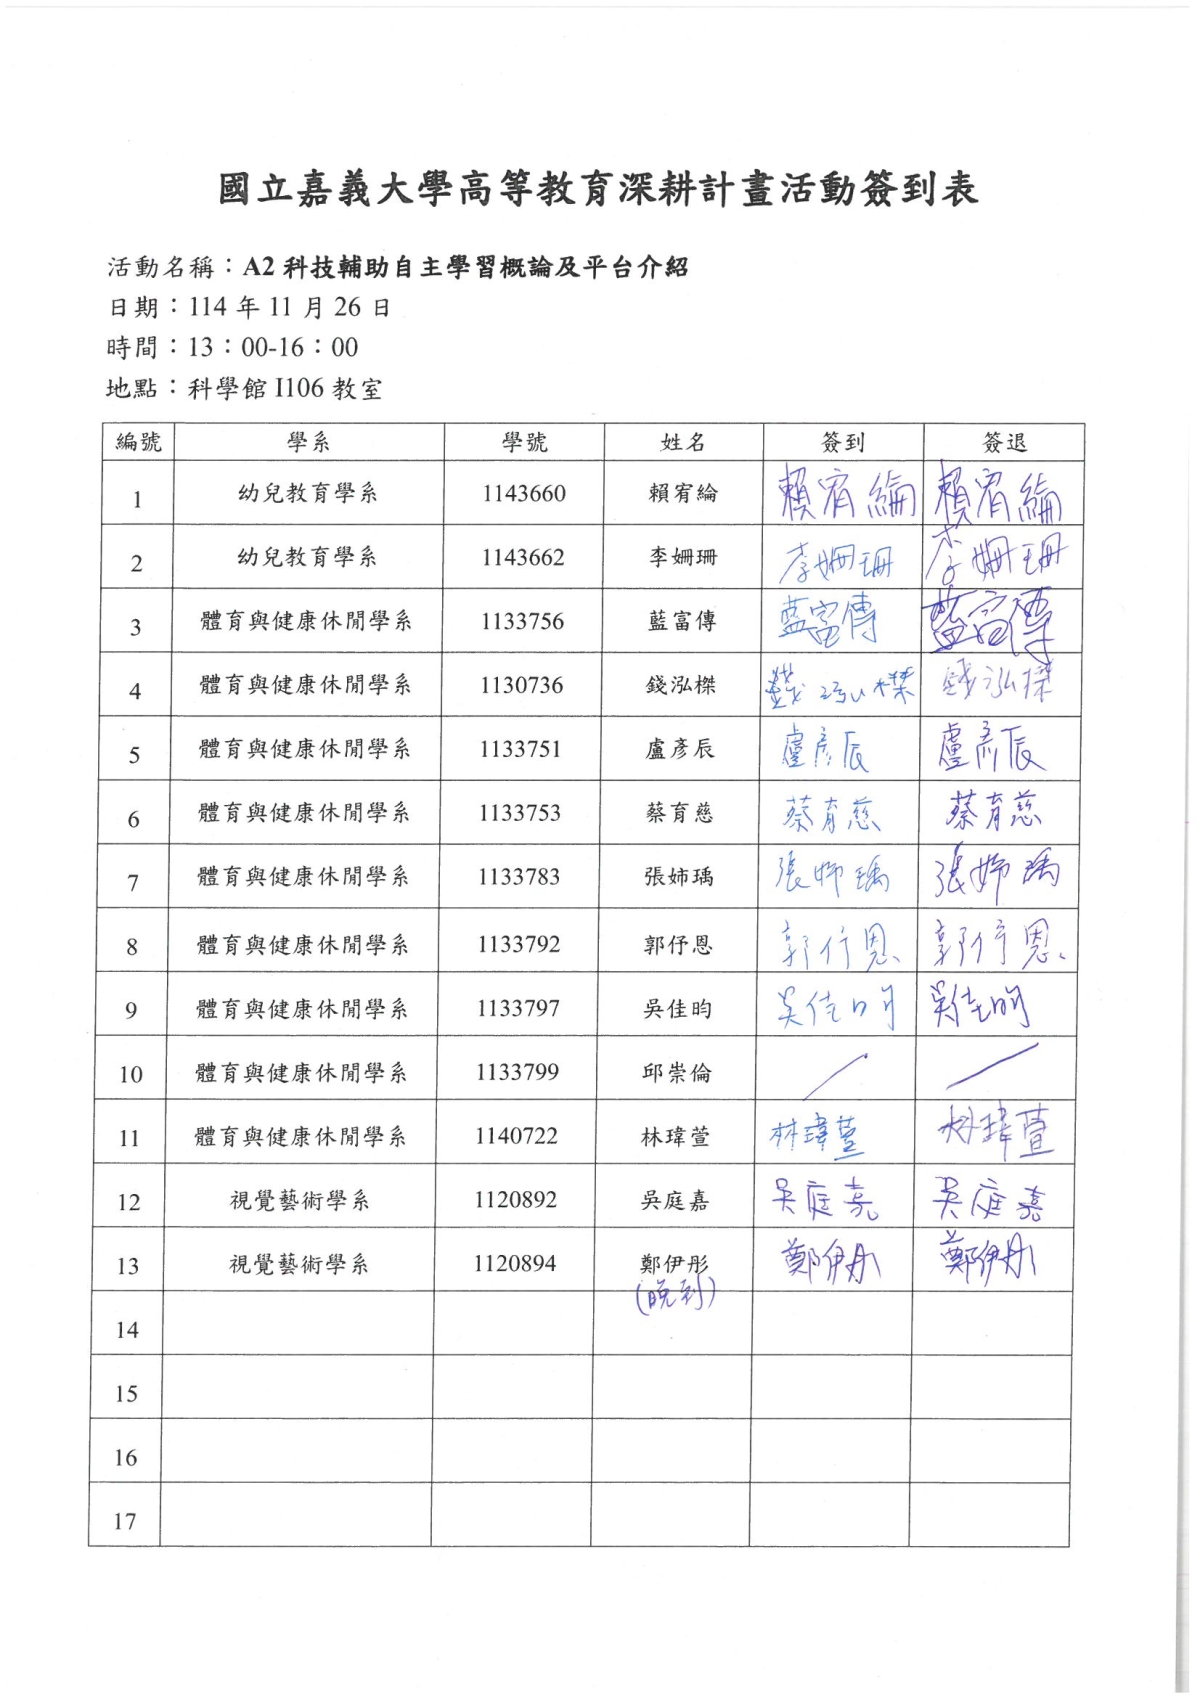 國立嘉義大學高等教育深耕計畫活動簽到表
活動名稱：A2 科技輔助自主學習概論及平台介紹
日期：114 年 11 月 26 日
時間：13：00-16：00
地點：科學館 I106 教室
編號 學系 學號 姓名 簽到 簽退
1 幼兒教育學系 1143660 賴宥綸 賴宥綸 賴宥綸
2 幼兒教育學系 1143662 李姍珊 李姍珊 李姍珊
3 體育與健康休閒學系 1133756 藍富傳 藍富傳 藍富傳
4 體育與健康休閒學系 1130736 錢泓櫸 錢泓櫸 錢泓櫸
5 體育與健康休閒學系 1133751 盧彥辰 盧彥辰 盧彥辰
6 體育與健康休閒學系 1133753 蔡育慈 蔡育慈 蔡育慈
7 體育與健康休閒學系 1133783 張姉瑀 張姉瑀 張姉瑀
8 體育與健康休閒學系 1133792 郭伃恩 郭伃恩 郭伃恩
9 體育與健康休閒學系 1133797 吳佳昀 吳佳昀 吳佳昀
10 體育與健康休閒學系 1133799 邱崇倫
11 體育與健康休閒學系 1140722 林瑋萱 林瑋萱 林瑋萱
12 視覺藝術學系 1120892 吳庭嘉 吳庭嘉 吳庭嘉
13 視覺藝術學系 1120894 鄭伊彤 鄭伊彤 鄭伊彤
(晚到)
14
15
16
17